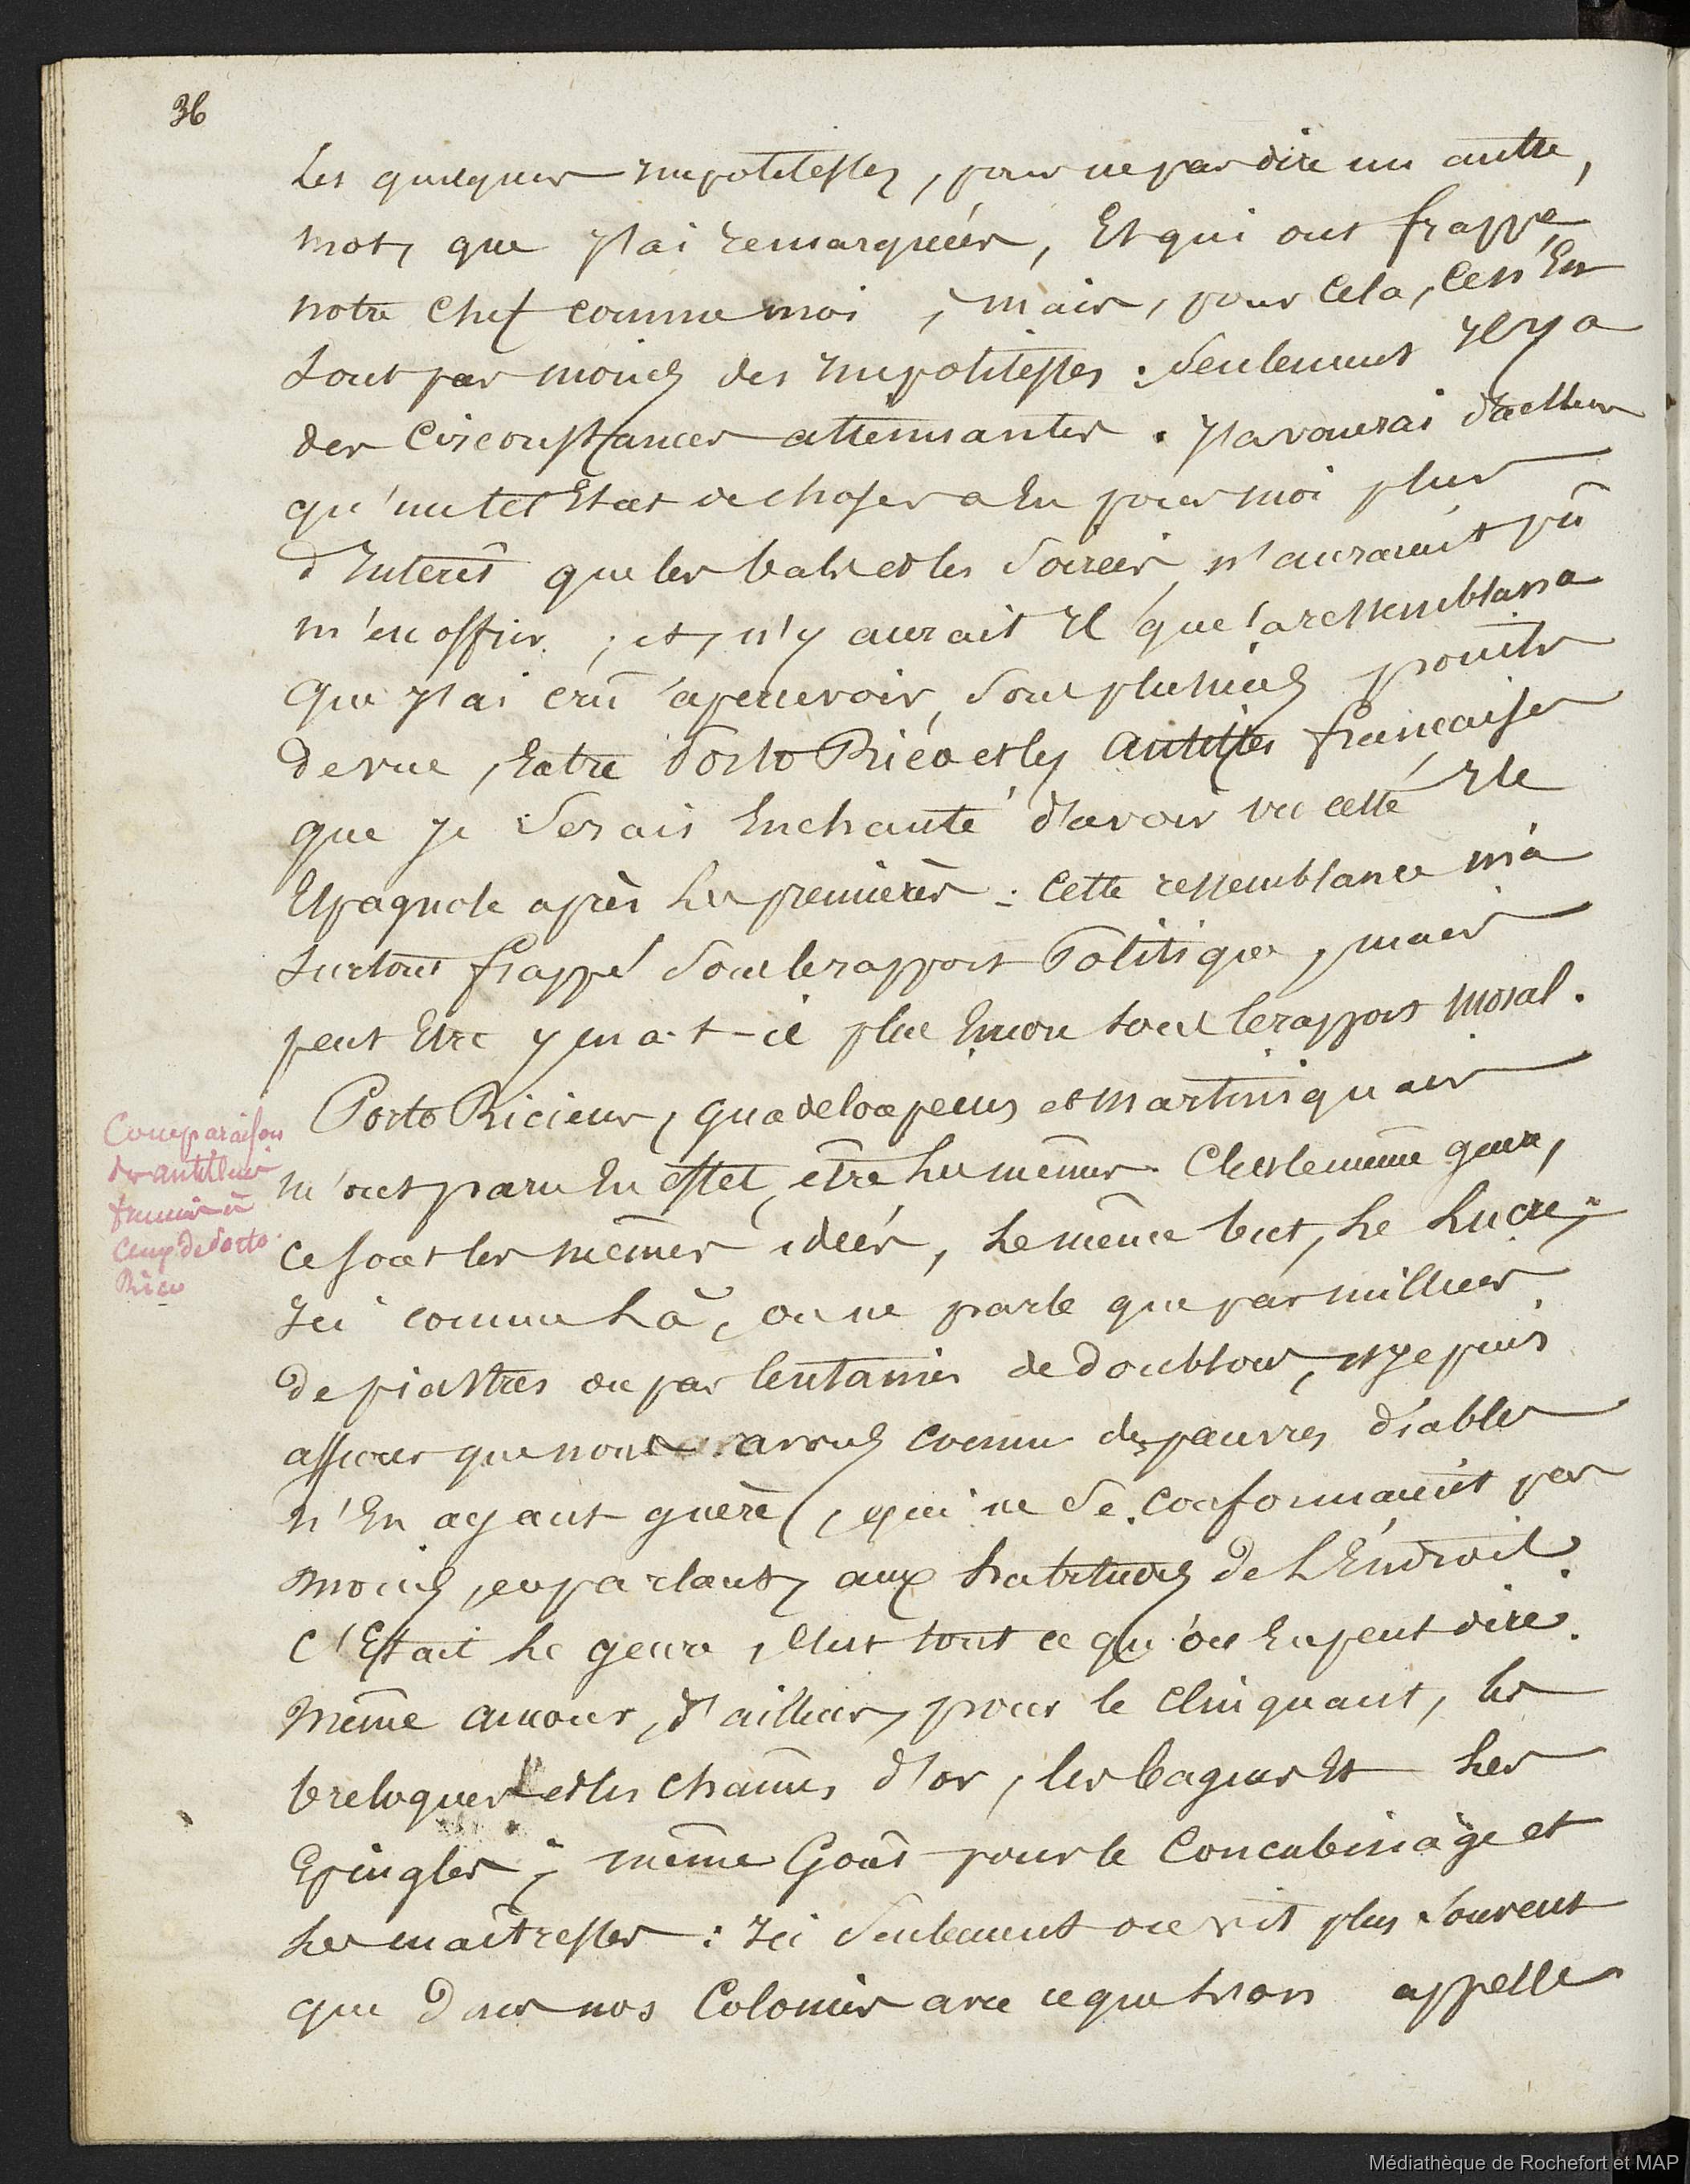 36
Les quelques impolitesses, pour ne pas dire un autre,
mot, que j'ai remarquées, Et qui ont frappé
notre Chef comme moi ; mais, pour Cela, Ce n'En
sont pas moins des impolitesses : Seulement il y a
des Circonstances attenuantes. J'avouerai d'ailleurs
qu'un tel Etat de choses a Eu pour moi plus
d'Interêt que les bals et les Soirées n'auraient pû
m'en offrir ; et, n'y aurait Il que la ressemblance
que j'ai crû apercevoir, Sous plusieurs points
de vue, Entre Porto Rico et les Antilles françaises
que je Serais Enchanté d'avoir vu cette Ile
Espagnole après Les premières : Cette ressemblance m'a
surtout frappé Sous le rapport Politique, mais
peut Etre y en a-t-il plus Encore sous le rapport Moral.
Porto Riciens, Guadeloupeens et Martiniquais
m'ont paru En effet, être Les mêmes. C'est le même genre,
ce sont les mêmes idées, Le même but, Le Lucre ;
Ici comme Là, on ne parle que par milliers
de piastres ou par Centaines de doublons, et je puis
assurer que nous avons connu des pauvres diables
n'En ayant guère, qui ne Se Conformaient pas
moins, en parlant, aux habitudes de L'Endroit.
C'Etait Le genre, C'est tout ce qu'on En peut dire.
Même amour, d'ailleurs, pour le Clinquant, les
breloques et les chaînes d'or, les bagues Et Les
Epingles ; même Goût pour le Concubinage et
Les maîtresses : Ici Seulement on vit plus Souvent
que dans nos Colonies avec ce que L'on appelle
Comparaison
des antilles
à
Ceux de Porto
Rico
Médiathèque de Rochefort et MAP